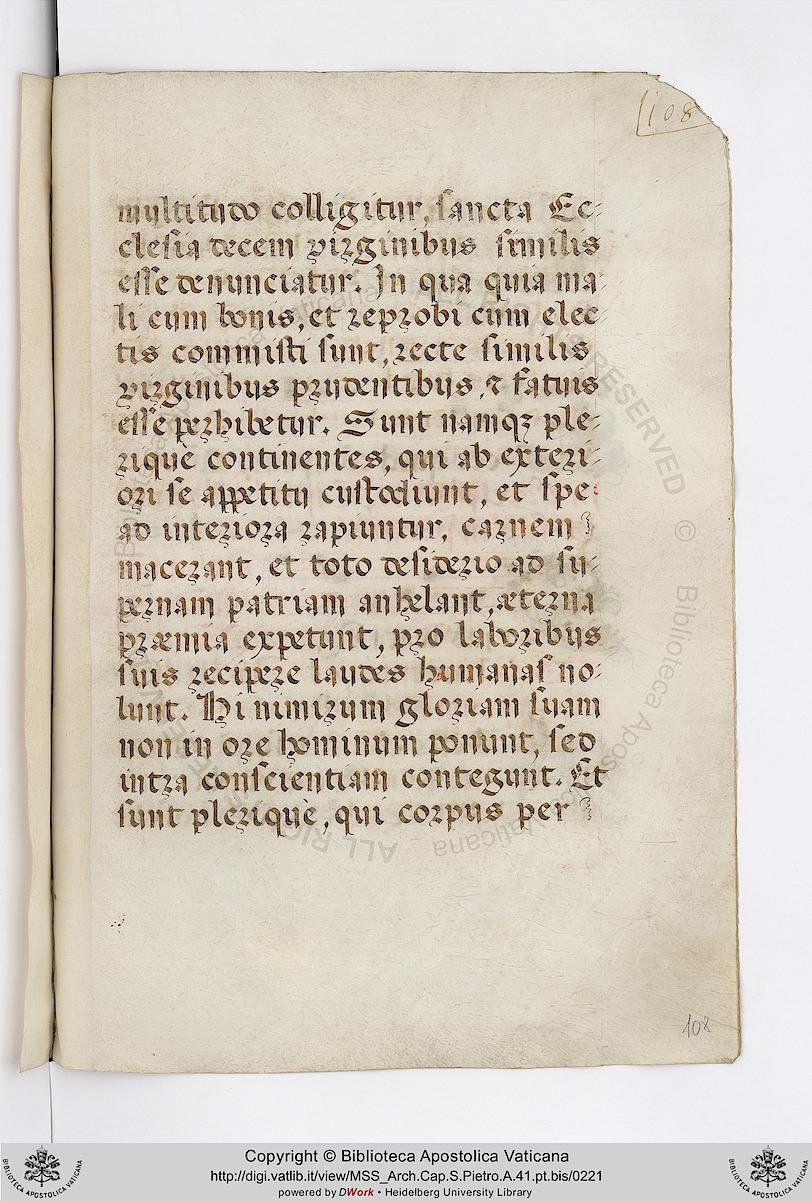 108
multitudo colligitur, sancta Ec-
clesia decem virginibus similis
esse denunciatur. In qua quia ma-
li cum bonis, et reprobi cum elec-
tis commisti sunt, recte similis
virginibus prudentibus, & fatuis
esse perhibetur. Sunt namqꝫ ple-
rique continentes, qui ab exteri-
ori se appetitu custodiunt, et spe
ad interiora rapiuntur, carnem
macerant, et toto desiderio ad su-
pernam patriam anhelant, æterna
præmia expetunt, pro laboribus
suis recipere laudes humanas no-
lunt. Hi nimirum gloriam suam
non in ore hominum ponunt, sed
intra conscientiam contegunt. Et
sunt pleriquè, qui corpus per
108
Copyright © Biblioteca Apostolica Vaticana
http://digi.vatlib.it/view/MSS_Arch.Cap.S.Pietro.A.41.pt.bis/0221
powered by DWork • Heidelberg University Library